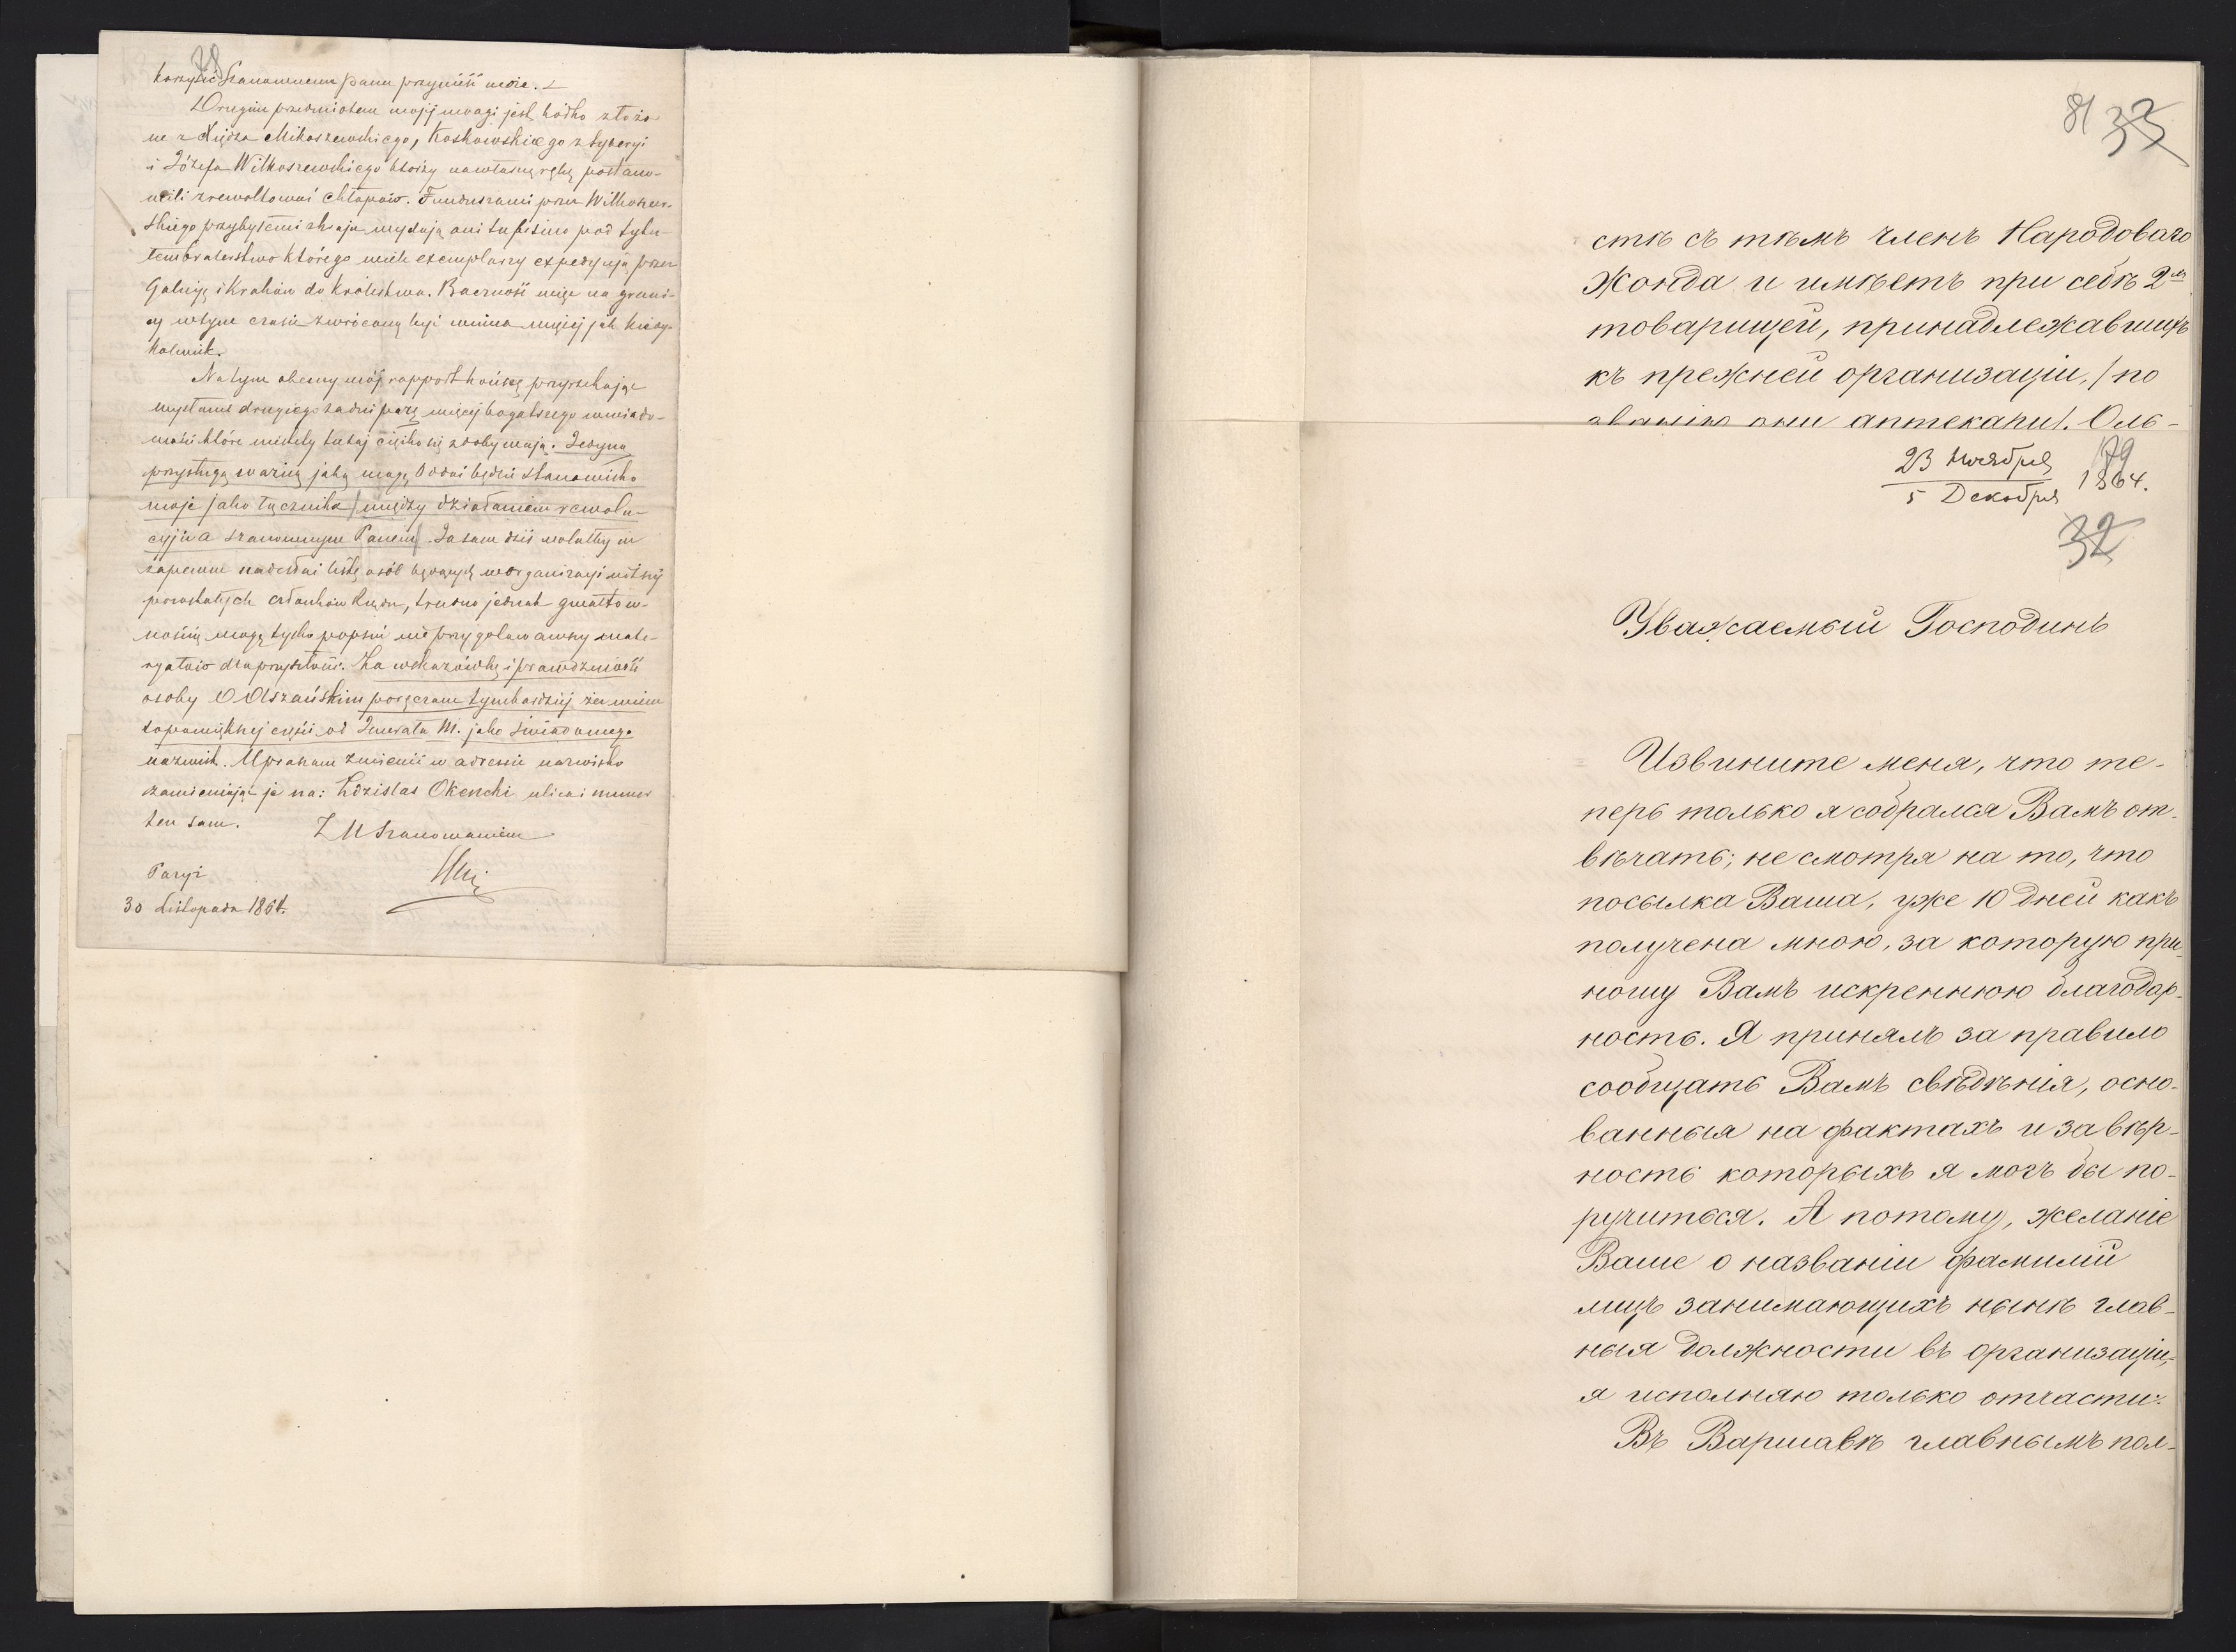 78
korzyść Szanownemu panu przynieść może.
Drugim przedmiotem mojej uwagi jest kółko złożo-
ne z Księdza Mikoszewskiego, Koskowskiego z Syberyi
i Józefa Wilkoszewskiego którzy na własną rękę postano-
wili zrewoltować chłopów. Funduszami przez Wilkoszew-
skiego przybyłemi z kraju wydają oni tu pismo pod tytu-
łem braterstwo którego wiele exemplarzy expedyują przez
Galicyę i Kraków do Królestwa. Baczność więc na grani-
cy w tym czasie zwróconą być winna więcej jak kiedy-
kolwiek.
Na tym obecny mój rapport kończę przyrzekając
wysłanie drugiego za dni parę więcej bogatszego w wiado-
mości które niestety tutaj ciężko się zdobywają. Jedyną
przysługą ważną jaką mogę oddać będzie stanowisko
moje jako łącznika między działaniem rewolu-
cyji a szanownym Panem. Ja sam dziś wolałbym
zapewne nadesłać listę osób będących w organizacyi
pozostałych członków Rządu, trudno jednak gwałtow-
nością mogę tylko popsuć nie przygotowawszy mate-
ryałów dla przyszłości. Za wskazówkę i prawdziwość
osoby O Olszańskim poręczam tymbardziej że wiem
to po większej części od Jenerała M. jako świadomego
nazwisk. Upraszam zmienić w adressie nazwisko
zamieniając je na: Zdzislas Okenchi ulica i numer
ten sam.
Z Uszanowaniem
Paryż
30 Listopada 1864.
81 33
стѣ съ тѣмъ членъ Народоваго
Жонда и имѣетъ при себѣ 2хъ
товарищей, принадлежавшихъ
къ прежней организаціи, /по
званію они аптекари/. Оль-
79
23 Ноября
5 Декабря 1864.
32
Уважаемый Господинъ
Извините меня, что те-
перь только я собрался Вамъ от-
вѣчать; не смотря на то, что
посылка Ваша, уже 10 дней какъ
получена мною, за которую при-
ношу Вамъ искреннюю благодар-
ность. Я принялъ за правило
сообщать Вамъ свѣдѣнія, осно-
ванныя на фактахъ и за вѣр-
ность которыхъ я могъ бы по-
ручиться. А потому, желаніе
Ваше о названіи фамилій
лицъ занимающихъ нынѣ глав-
ныя должности въ организаціи,
я исполняю только отчасти:
Въ Варшавѣ главнымъ пол-